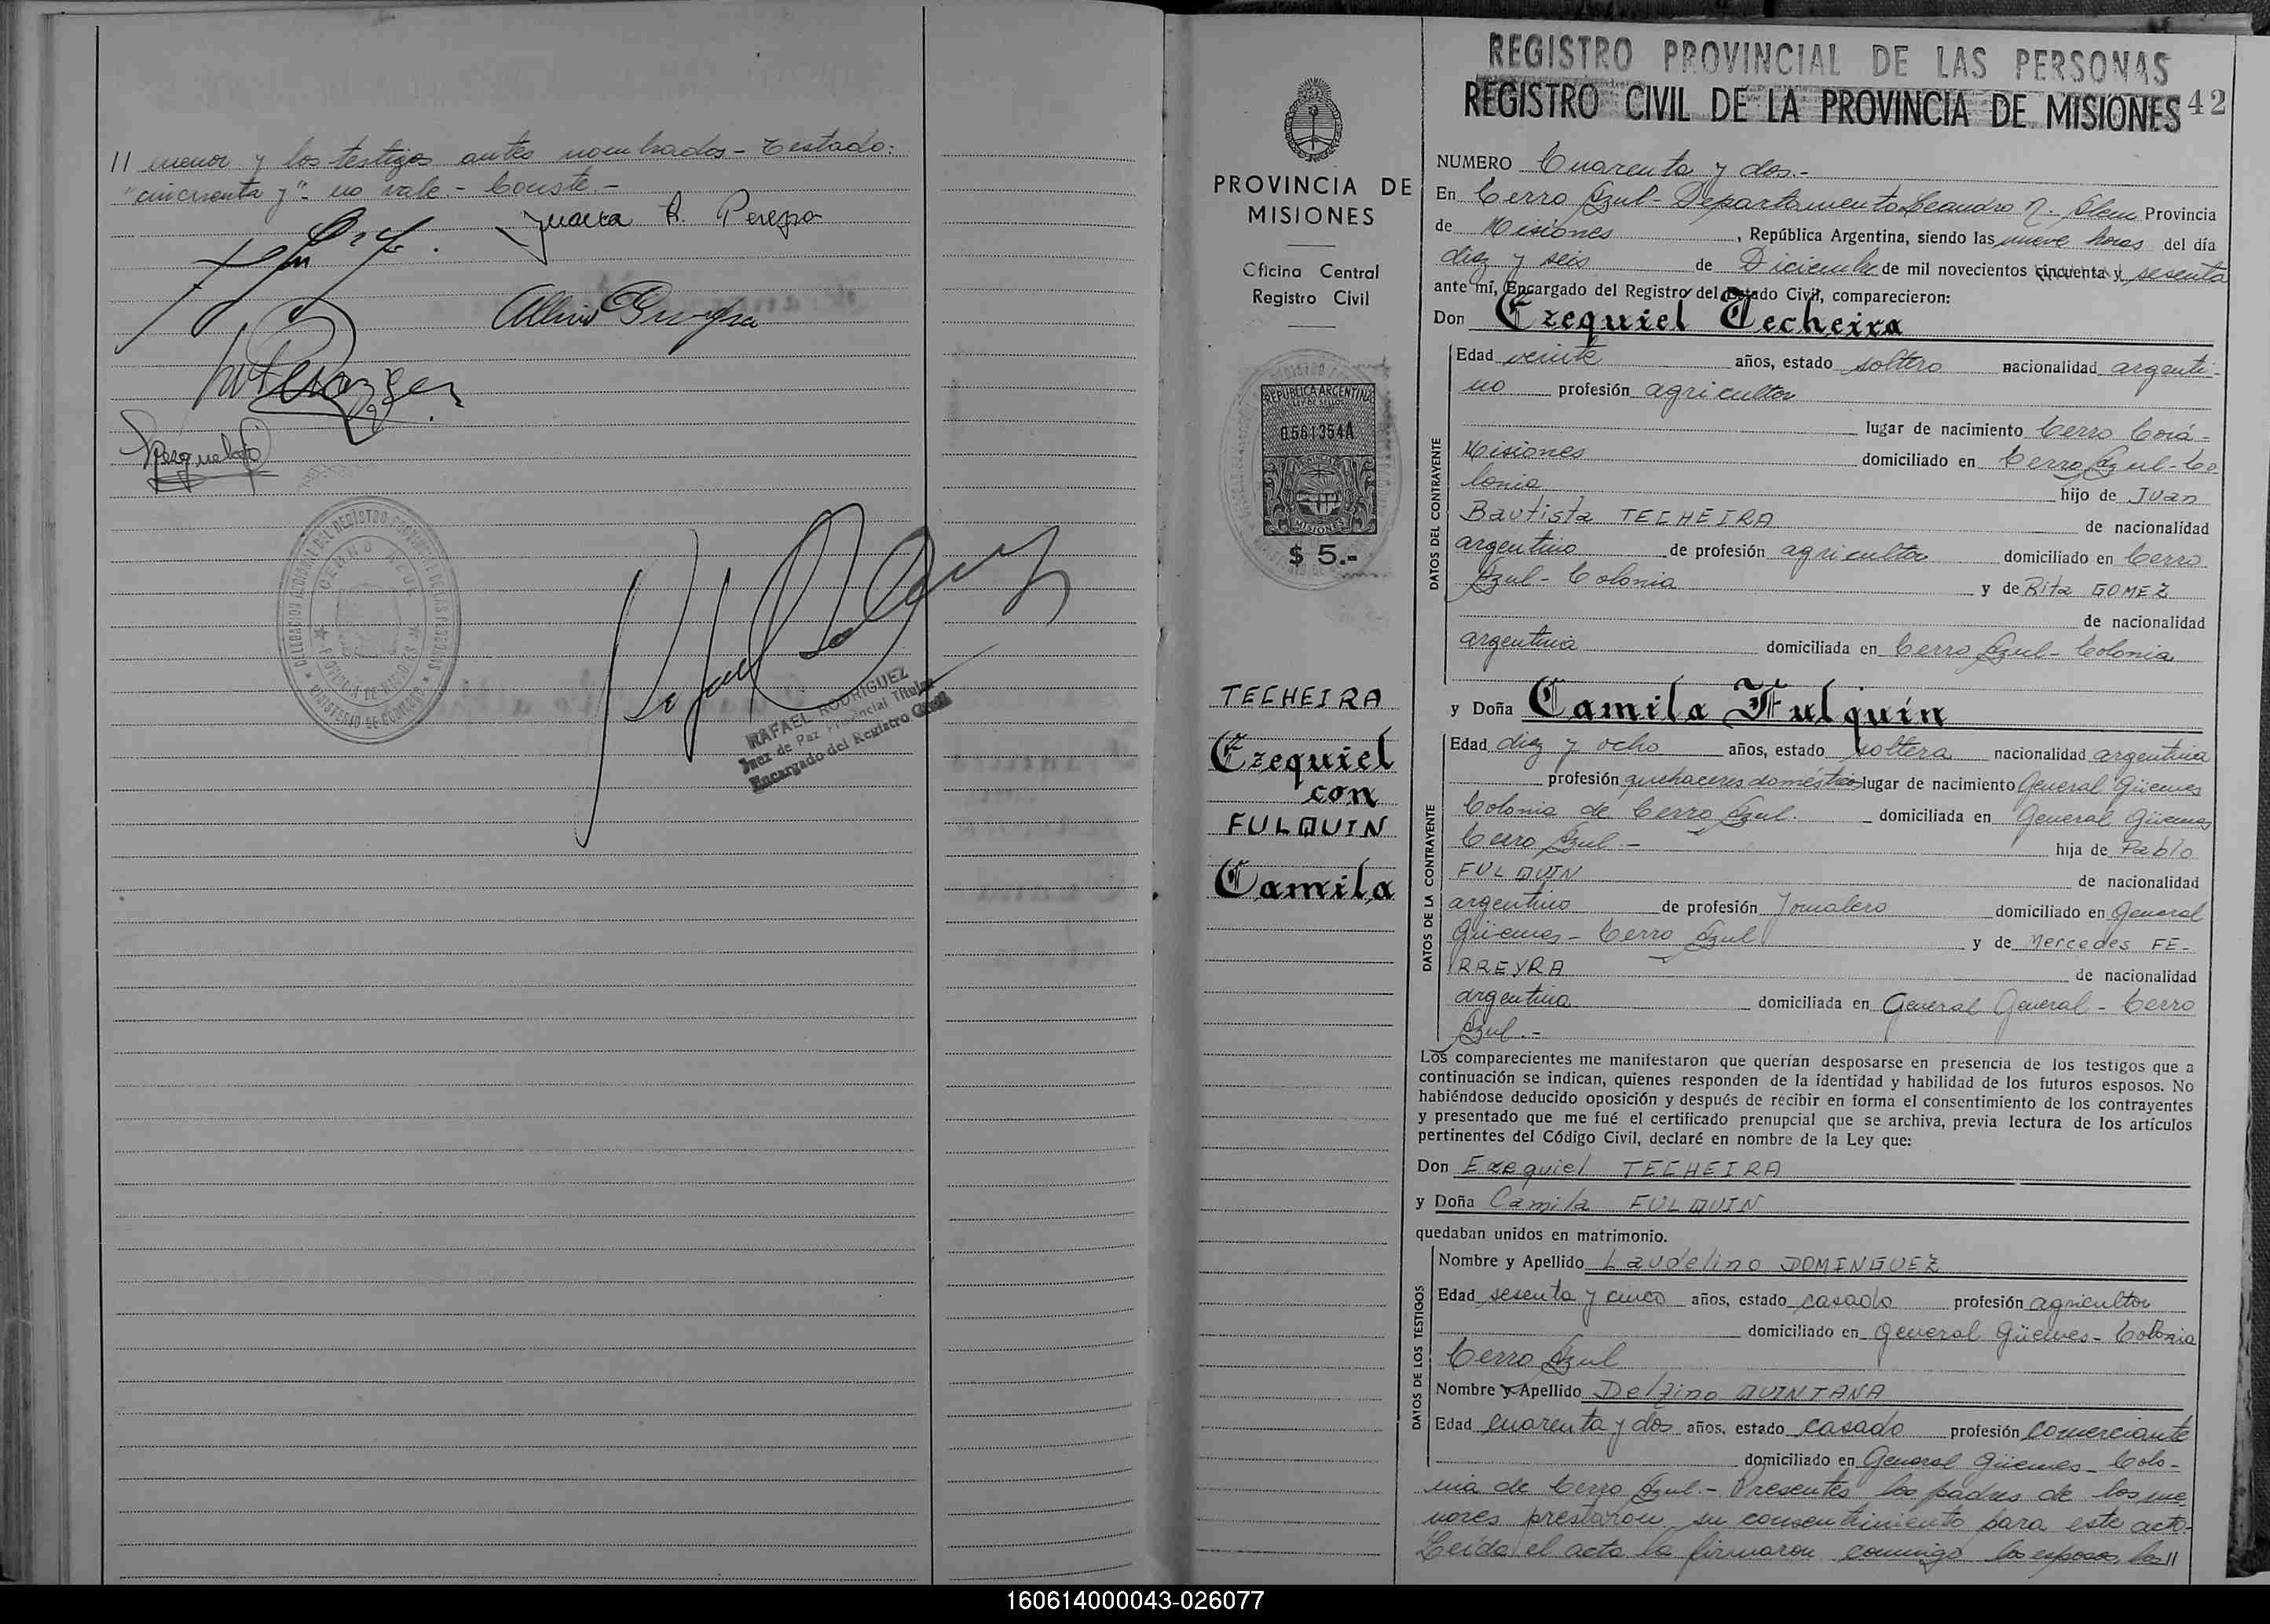 // menor y los testigos antes nombrados - Testado:
"cincuenta y" - no vale. - Conste. -
Juana R.
DELEGACION SECCIONAL DEL REGISTRO PROVINCIAL DE LAS PERSONAS
CERRO AZUL
PROVINCIA DE MISIONES
MINISTERIO DE GOBIERNO
RAFAEL RODRIGUEZ
Juez de Paz Provincial Titular
Encargado del Registro Civil
PROVINCIA DE
MISIONES
Oficina Central
Registro Civil
REPUBLICA ARGENTINA
LEY DE SELLOS
0.561354A
MISIONES
$ 5.-
TECHEIRA
Ezequiel
con
FULQUIN
Camila
REGISTRO PROVINCIAL DE LAS PERSONAS
REGISTRO CIVIL DE LA PROVINCIA DE MISIONES 42
NUMERO Cuarenta y dos.-
En Cerro Azul - Departamento Leandro N. Alem Provincia
de Misiones, República Argentina, siendo las nueve horas del día
diez y seis de Diciembre de mil novecientos cincuenta y sesenta
ante mí, Encargado del Registro del Estado Civil, comparecieron:
Don Ezequiel Techeira
DATOS DEL CONTRAYENTE
Edad veinte años, estado soltero nacionalidad argenti-
no profesión agricultor
lugar de nacimiento Cerro Corá -
Misiones domiciliado en Cerro Azul - Co-
lonia hijo de Juan
Bautista TECHEIRA de nacionalidad
argentino de profesión agricultor domiciliado en Cerro
Azul - Colonia y de Rita GOMEZ
de nacionalidad
argentina domiciliada en Cerro Azul - Colonia
y Doña Camila Fulquin
DATOS DE LA CONTRAYENTE
Edad diez y ocho años, estado soltera nacionalidad argentina
profesión quehaceres domésticos lugar de nacimiento General Güemes
Colonia de Cerro Azul. domiciliada en General Güemes
Cerro Azul. - hija de Pablo
FULQUIN de nacionalidad
argentino de profesión Jornalero domiciliado en General
Güemes - Cerro Azul y de Mercedes FE-
RREYRA de nacionalidad
argentina domiciliada en General General - Cerro
Azul. -
Los comparecientes me manifestaron que querían desposarse en presencia de los testigos que a
continuación se indican, quienes responden de la identidad y habilidad de los futuros esposos. No
habiéndose deducido oposición y después de recibir en forma el consentimiento de los contrayentes
y presentado que me fué el certificado prenupcial que se archiva, previa lectura de los artículos
pertinentes del Código Civil, declaré en nombre de la Ley que:
Don Ezequiel TECHEIRA
y Doña Camila FULQUIN
quedaban unidos en matrimonio.
DATOS DE LOS TESTIGOS
Nombre y Apellido Laudelino DOMINGUEZ
Edad sesenta y cinco años, estado casado profesión agricultor
domiciliado en General Güemes - Colonia
Cerro Azul
Nombre y Apellido Delfino QUINTANA
Edad cuarenta y dos años, estado casado profesión comerciante
domiciliado en General Güemes - Colo-
nia de Cerro Azul. - Presentes los padres de los me-
nores prestaron su consentimiento para este acto-
Leida el acta la firmaron conmigo los esposos, los //
160614000043-026077